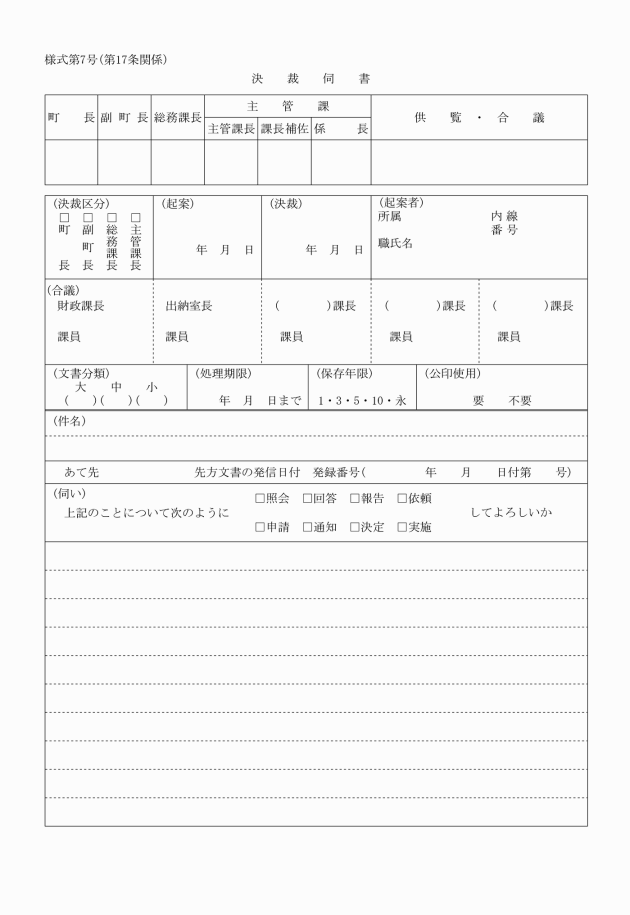 様式第7号(第17条関係)
決 裁 伺 書
町 長 副 町 長 総務課長 主 管 課 供 覧 ・ 合 議
主管課長 課長補佐 係 長
(決裁区分) (起案) (決裁) (起案者)
□町長 □副町長 □総務課長 □主管課長
所属 内線番号
年 月 日 年 月 日
職氏名
(合議)
財政課長 出納室長 ( )課長 ( )課長 ( )課長
課員 課員 課員 課員 課員
(文書分類) (処理期限) (保存年限) (公印使用)
大 中 小
( )( )( ) 年 月 日まで 1・3・5・10・永 要 不要
(件名)
あて先 先方文書の発信日付 発録番号( 年 月 日付第 号)
(伺い)
□照会 □回答 □報告 □依頼
上記のことについて次のように してよろしいか
□申請 □通知 □決定 □実施